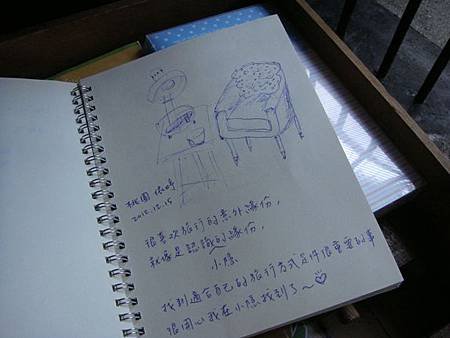 桃園
2012.12.15
很喜歡旅行的意外緣份,
就像是認識的緣份,
小隱
找到適合自己的旅行方式是件很重要的事
很開心我在小隱找到了~♡